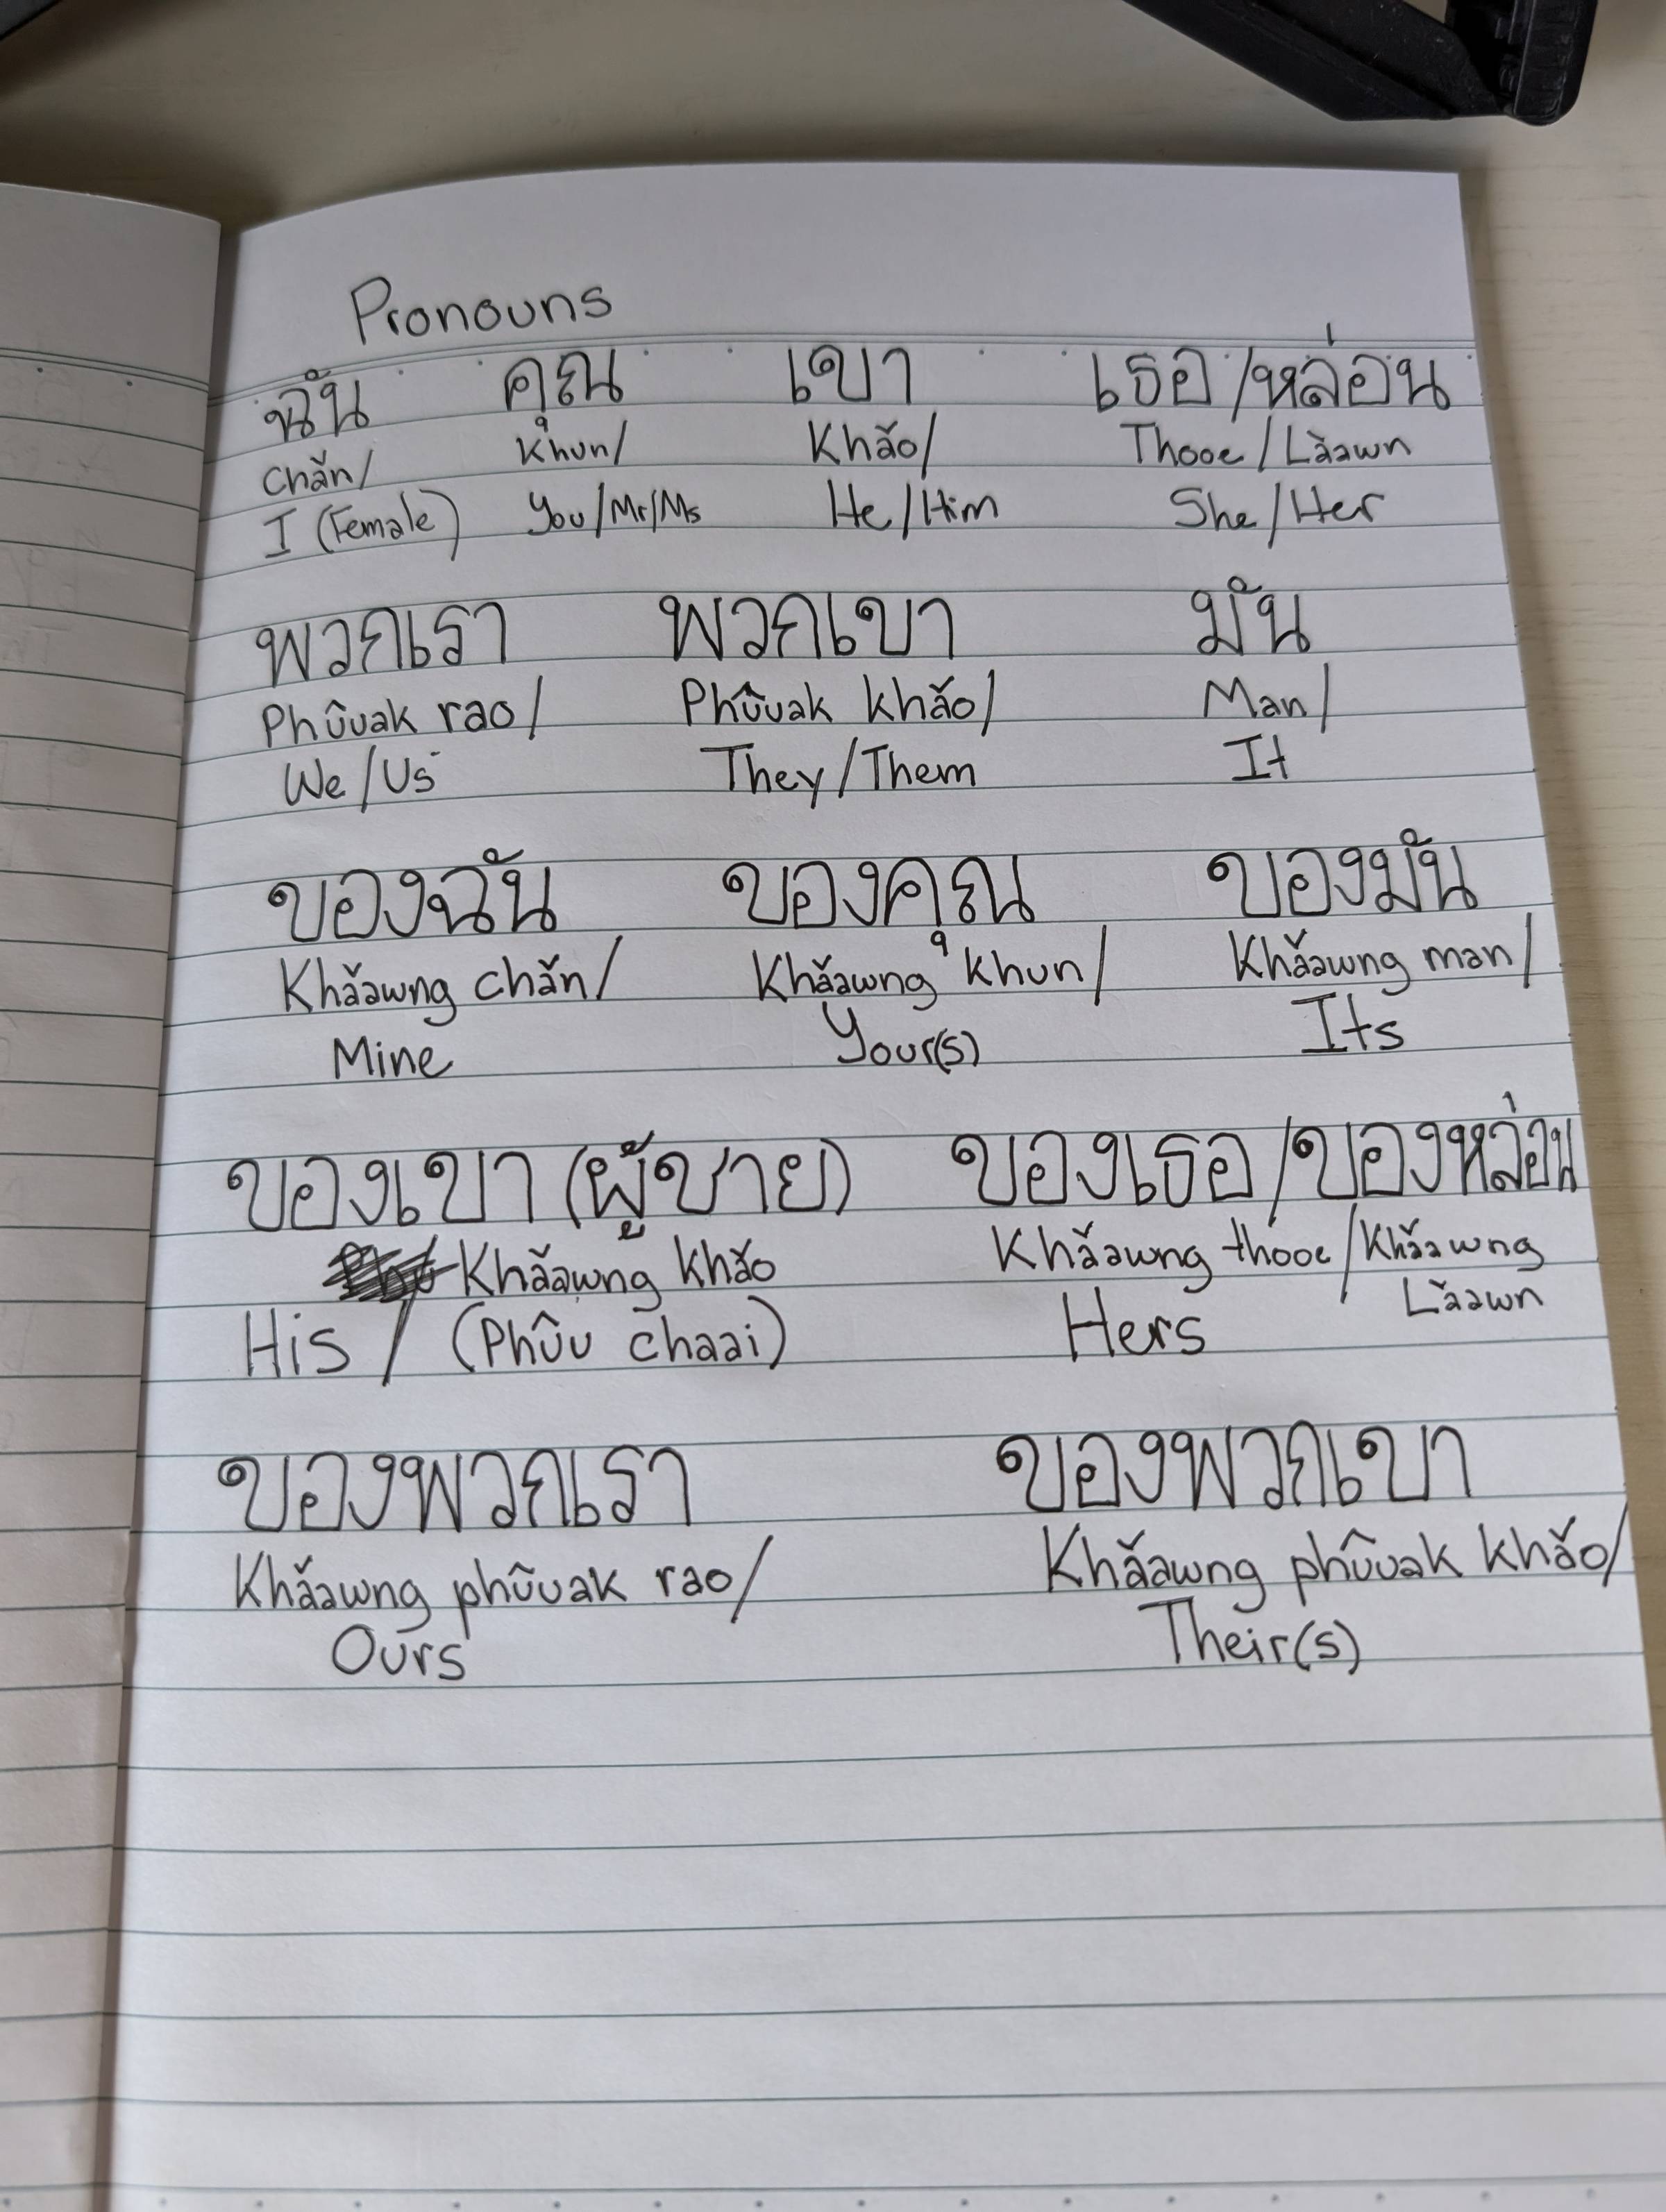 Pronouns
ฉัน คุณ เขา เธอ/หล่อน
Chǎn/ Khun/ Khǎo/ Thooe/Lààawn
I (Female) You/Mr/Ms He/Him She/Her
พวกเรา พวกเขา มัน
Phûuak rao/ Phûuak khǎo/ Man/
We/Us They/Them It
ของฉัน ของคุณ ของมัน
Khǎǎawng chǎn/ Khǎǎawng khun/ Khǎǎawng man/
Mine Your(s) Its
ของเขา (ผู้ชาย) ของเธอ/ของหล่อน
Khǎǎawng khǎo Khǎǎawng thooe/Khǎǎawng
Lààawn
His / (Phûu chaai) Hers
ของพวกเรา ของพวกเขา
Khǎǎawng phûuak rao/ Khǎǎawng phûuak khǎo/
Ours Their(s)